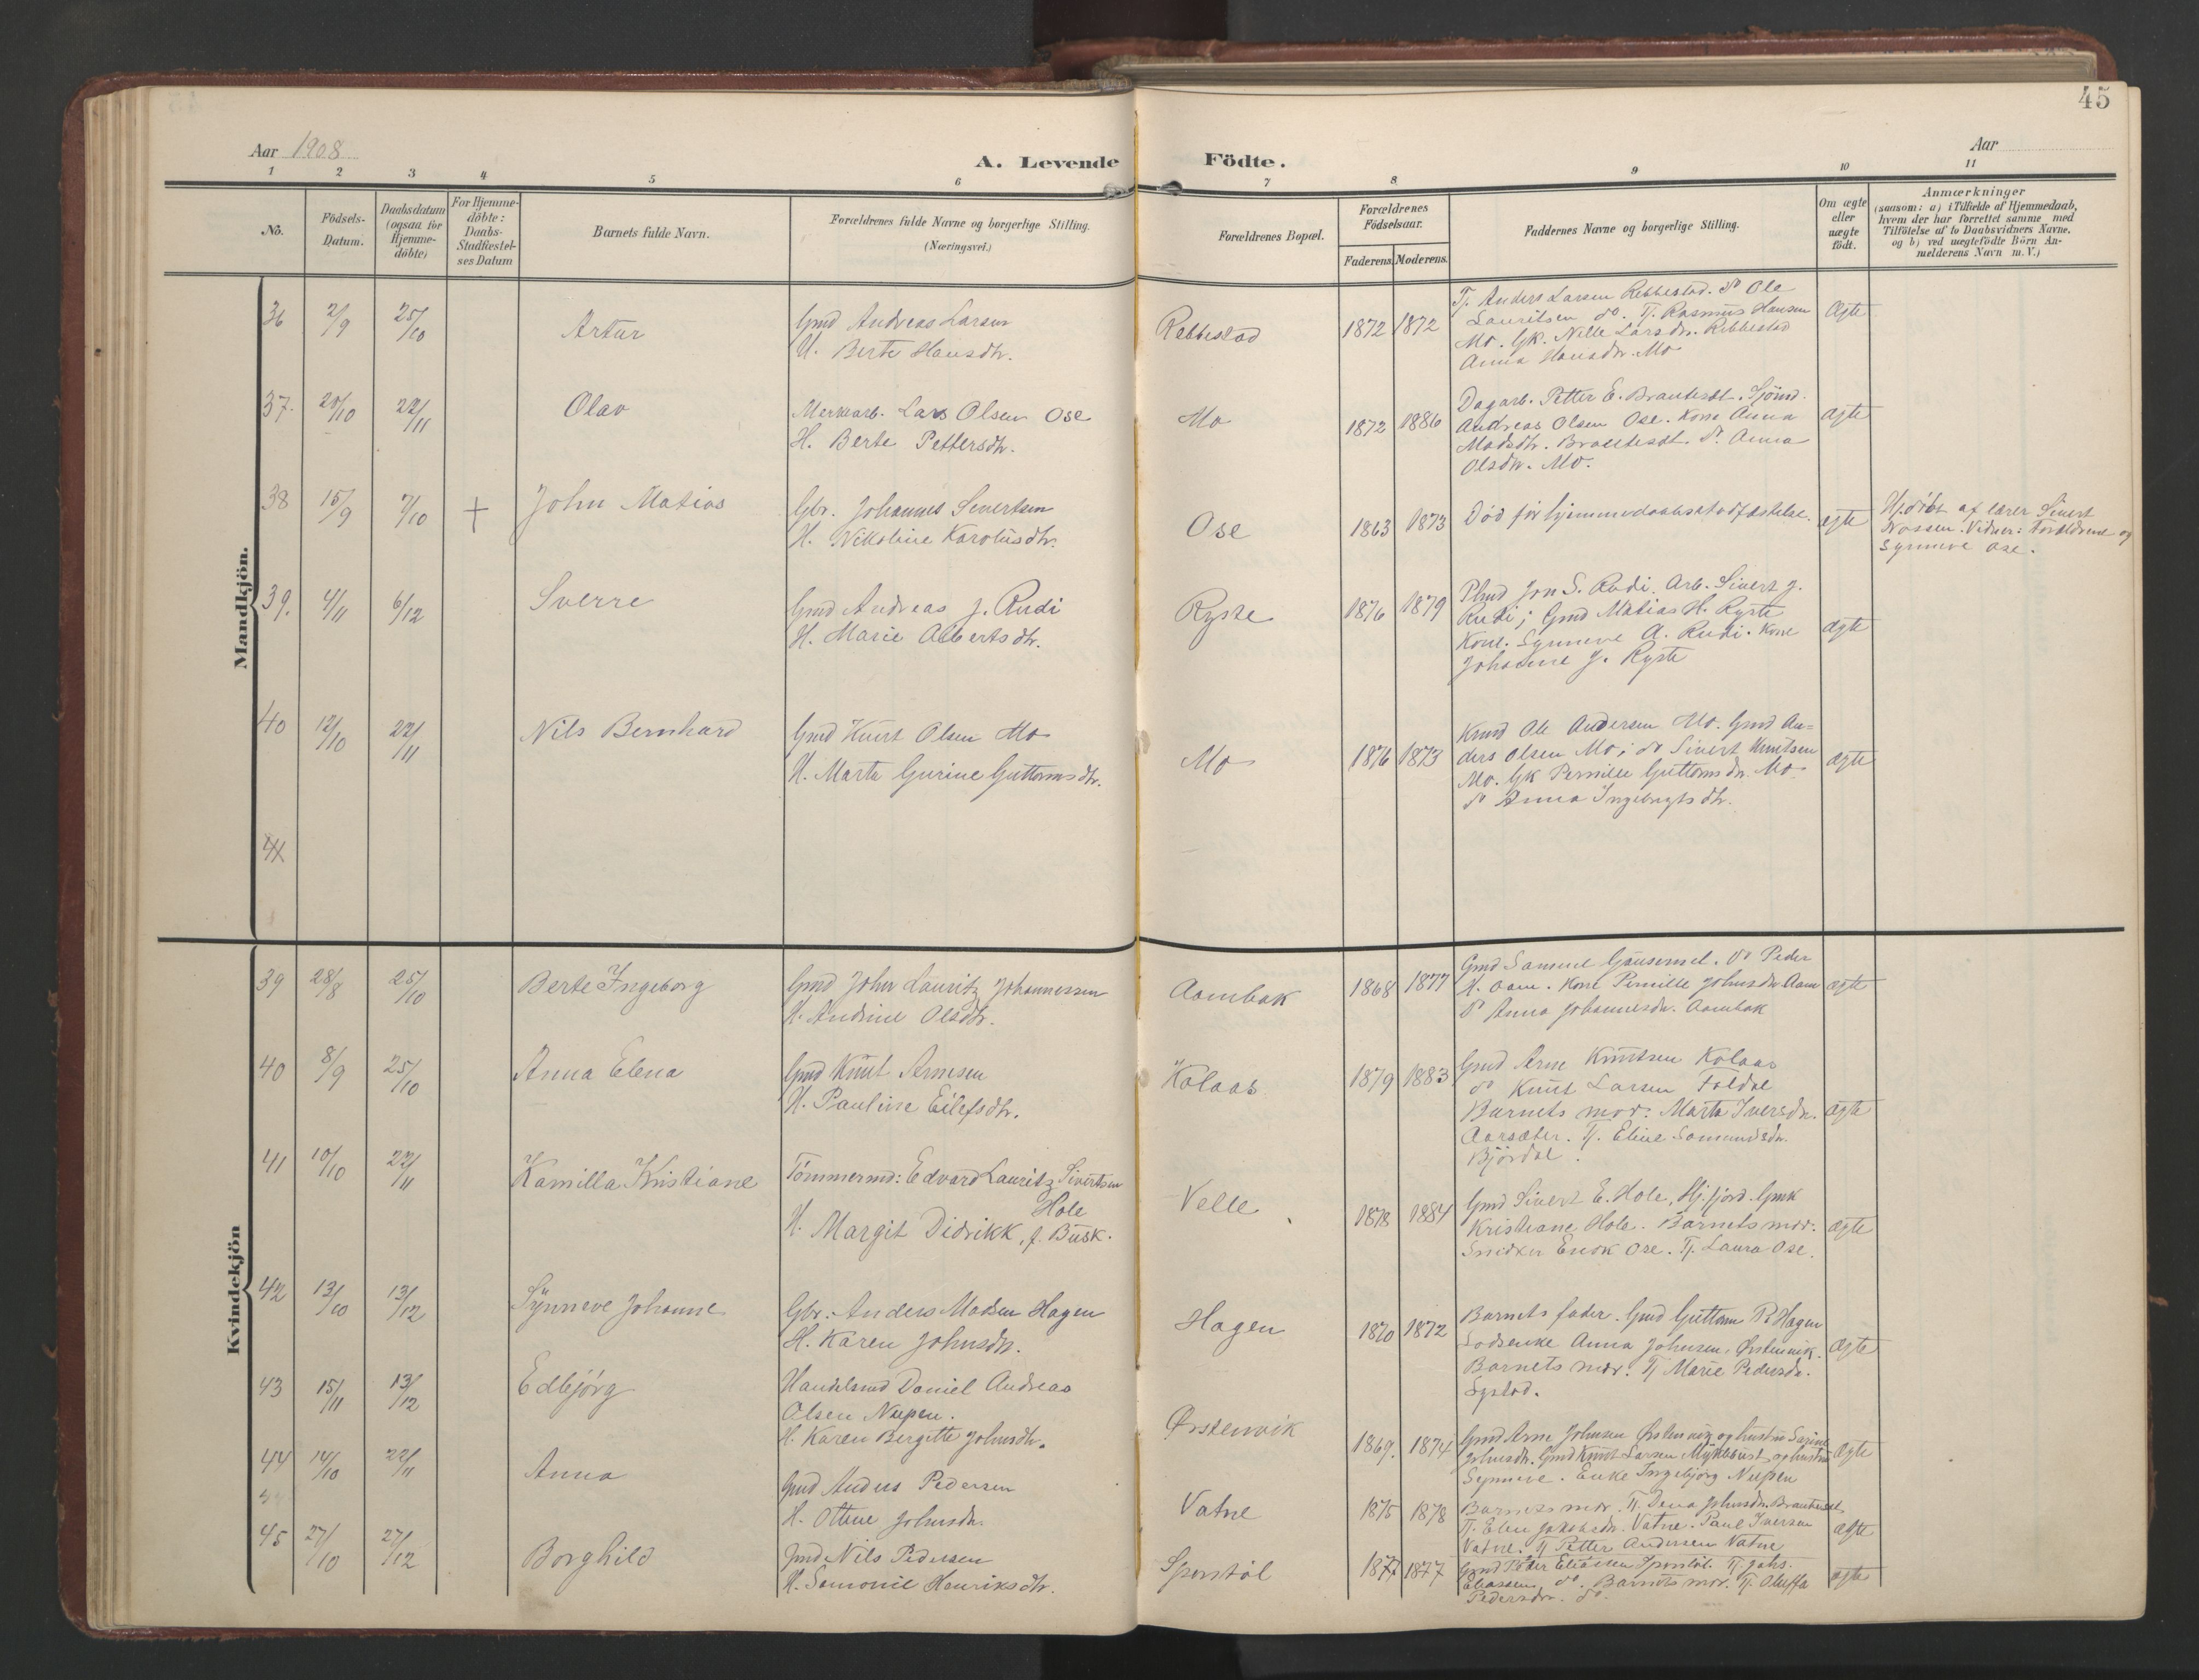 45
Aar 1908
A. Levende Födte.
Aar
1 2 3 4 5 6 7 8 9 10 11
No.
Födsels-
Datum.
Daabsdatum
(ogsaa for
Hjemme-
döbte)
For Hjemme-
döbte:
Daabs-
Stadfiestel-
ses Datum
Barnets fulde Navn.
Forældrenes fulde Navne og borgerlige Stilling.
(Næringsvei.)
Forældrenes Bopæl.
Forældrenes
Födselsaar.
Faderens. Moderens.
Faddernes Navne og borgerlige Stilling.
Om ægte
eller
uægte
födt.
Anmærkninger
(saasom: a) i Tilfælde af Hjemmedaab,
hvem der har forrettet samme med
Tilföielse af to Daabsvidners Navne.
og b) ved uægtefödte Börn An-
melderens Navn m.V.)
Mandkjön.
36 2/9 25/10 Artur
Gmd Andreas Larsen
H. Berte Hansdtr.
Rebbestad 1872 1872
Tj. Anders Larsen Rebbestad. do Ole
Lauritsen do. Tj. Rasmus Hansen
Mo. Gk. Nille Larsdtr. Rebbestad
Anna Hansdtr. Mo
Ægte
37. 20/10 22/11 Olav
Merkarb. Lars Olsen Ose
H. Berte Pettersdtr.
Mo 1872 1886
Dagarb. Petter E. Brauteset. Sjömd.
Andreas Olsen Ose. Kone Anna
Madsdtr. Brauteset. do Anna
Olsdtr. Mo.
ægte
38 15/9 7/10 + John Matias
Gbr. Johannes Sivertsen
H. Nikoline Karolusdtr.
Ose 1863 1873
Död för hjemmedaabsstadfæstelse.
ægte
Hj.döbt af lærer Sivert
Nossen. Vidner: Forældrene og
Synneve Ose.
39. 4/11 6/12 Sverre
Gmd Andreas J. Rudi
H. Marie Albertsdtr.
Ryste 1876 1879
Plmd Jon S. Rudi. Arb. Sivert J.
Rudi; Gmd Matias H. Ryste
Kone Synneve A. Rudi. Kone
Johanne J. Ryste
ægte
40 12/10 22/11 Nils Bernhard
Gmd Knut Olsen Mo
H. Marte Gurine Guttormsdtr.
Mo 1876 1873
Kmd Ole Andersen Mo. Gmd An=
ders Olsen Mo; do Sivert Knutsen
Mo. Gk Pernille Guttormsdtr. Mo
do Anna Ingebrigtsdtr.
ægte
41
Kvindekjön
39 28/8 25/10 Berte Ingeborg
Gmd John Lauritz Johannessen
H. Andrine Olsdtr.
Aambak 1868 1877
Gmd Samuel Gausemel. do Peder
H. Aam. Kone Pernille Johnsdtr. Aam
do Anna Johannesdtr. Aambak
ægte
40 8/9 25/10 Anna Elena
Gmd Knut Arnesen
H. Pauline Eilefsdtr.
Kolaas 1879 1883
Gmd Arne Knutsen Kolaas
do Knut Larsen Foldal
Barnets mor. Marta Iversdtr.
Aarsæter. Tj. Eline Samundsdtr.
Björdal.
ægte
41 10/10 22/11 Kamilla Kristiane
Tömmermd: Edvard Lauritz Sivertsen
Hole
H. Margit Didrikk, f. Busk.
Velle 1878 1884
Gmd Sivert E. Hole, Hj.fjord. Gmk
Kristiane Hole. Barnets mor.
Snedker Enok Ose. Tj. Laura Ose.
ægte
42 13/10 13/12 Synneve Johanne
Gbr. Anders Madsen Hagen
H. Karen Johnsdtr.
Hagen 1870 1872
Barnets fader. Gmd Guttorm P. Hagen
Anna Johnsen, Ørstenvik.
Barnets mor. Tj Marie Pedersdtr.
ægte
43 15/11 13/12 Edbjörg
Handelsmd Daniel Andreas
Olsen Nupen.
H. Karen Bergitte Johnsdtr.
Ørstenvik 1869. 1874
Gmd Arne Johnsen Ørstenvig og hustru Sarine
Johnsdtr. Gmd Knut Larsen Myklebust og hustru
Synneve. Enke Ingebjörg Nupen
Ægte
44 14/10 22/11 Anna
Gmd Anders Pedersen
H. Ottine Johnsdtr.
Vatne 1875 1878
Barnets mor. Tj. Dena Johnsdtr. Brauteset
Tj. Elen Jakobsdtr. Vatne. Paul Iversen
Vatne. Tj Petter Andersen Vatne
ægte
45 27/10 27/12 Borghild
Gmd Nils Pedersen
H. Samonie Henriksdtr.
Sporstöl 1877 1877
Gmd Peder Eliassen Sporstöl. Tj Johs.
Eliassen do. Barnets mor. Tj. Oluffa
Pedersdtr. do.
ægte